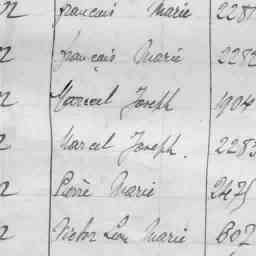 n François Marie 228
n François Marie 2282
n Marcel Joseph 1904
n Marcel Joseph. 2283
n Pierre Marie 2475
n Victor Léon Marie 607